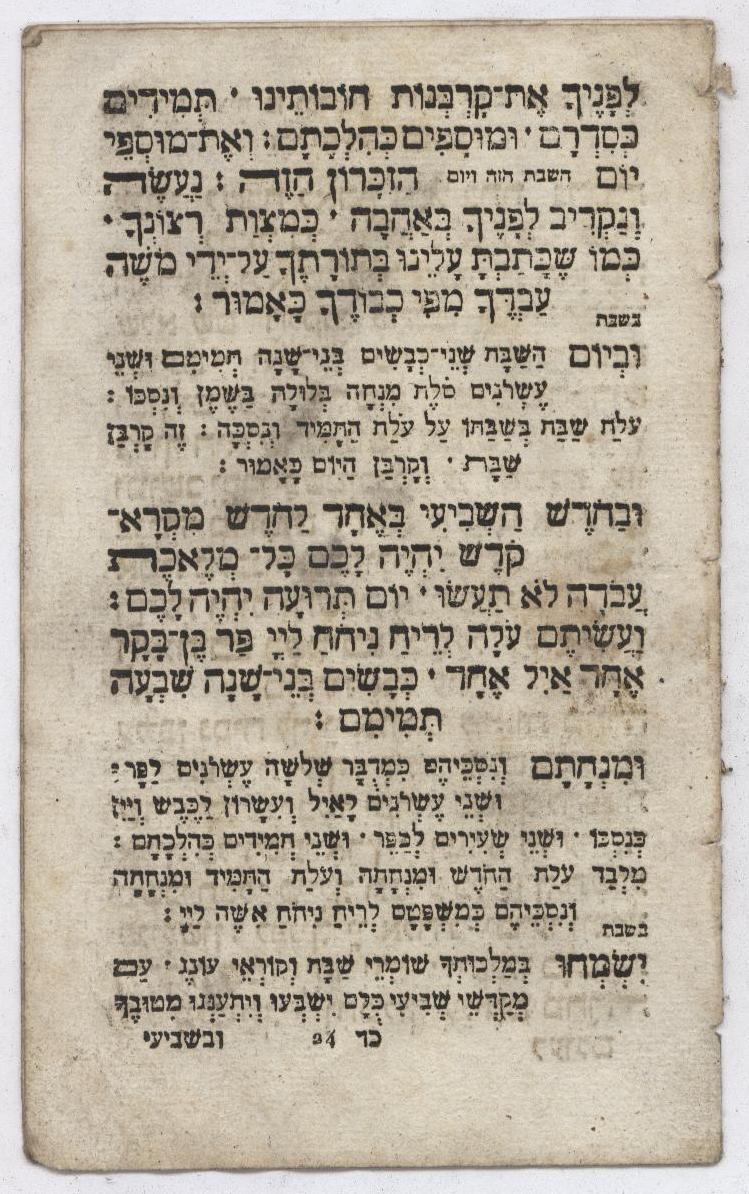 לְפָנֶיךָ אֶת־קָרְבְּנוֹת חוֹבוֹתֵינוּ · תְּמִידִים
כְּסִדְרָם · וּמוּסָפִים כְּהִלְכָתָם : וְאֶת־מוּסְפֵי
יוֹם השבת הזה ויום הַזִּכָּרוֹן הַזֶּה : נַעֲשֶׂה
וְנַקְרִיב לְפָנֶיךָ בְּאַהֲבָה · כְּמִצְוַת רְצוֹנֶךָ ·
כְּמוֹ שֶׁכָּתַבְתָּ עָלֵינוּ בְּתוֹרָתֶךָ עַל־יְדֵי מֹשֶׁה
עַבְדֶּךָ מִפִּי כְבוֹדֶךָ כָּאָמוּר :
בשבת
וּבְיוֹם הַשַּׁבָּת שְׁנֵי־כְבָשִׂים בְּנֵי־שָׁנָה תְּמִימִם וּשְׁנֵי
עֶשְׂרֹנִים סֹלֶת מִנְחָה בְּלוּלָה בַשֶּׁמֶן וְנִסְכּוֹ :
עֹלַת שַׁבַּת בְּשַׁבַּתּוֹ עַל עֹלַת הַתָּמִיד וְנִסְכָּהּ : זֶה קָרְבַּן
שַׁבָּת · וְקָרְבַּן הַיּוֹם כָּאָמוּר :
וּבַחֹדֶשׁ הַשְּׁבִיעִי בְּאֶחָד לַחֹדֶשׁ מִקְרָא־
קֹדֶשׁ יִהְיֶה לָכֶם כָּל־ מְלֶאכֶת
עֲבֹדָה לֹא תַעֲשׂוּ · יוֹם תְּרוּעָה יִהְיֶה לָכֶם :
וַעֲשִׂיתֶם עֹלָה לְרֵיחַ נִיחֹחַ לַיְיָ פַּר בֶּן־בָּקָר
אֶחָד אַיִל אֶחָד · כְּבָשִׂים בְּנֵי־שָׁנָה שִׁבְעָה
תְּמִימִם :
וּמִנְחָתָם וְנִסְכֵּיהֶם כִּמְדֻבָּר שְׁלֹשָׁה עֶשְׂרֹנִים לַפָּר :
וּשְׁנֵי עֶשְׂרֹנִים לָאַיִל וְעִשָּׂרוֹן לַכֶּבֶשׂ וְיַיִן
כְּנִסְכּוֹ · וּשְׁנֵי שְׂעִירִים לְכַפֵּר · וּשְׁנֵי תְמִידִים כְּהִלְכָתָם :
מִלְּבַד עֹלַת הַחֹדֶשׁ וּמִנְחָתָהּ וְעֹלַת הַתָּמִיד וּמִנְחָתָהּ
וְנִסְכֵּיהֶם כְּמִשְׁפָּטָם לְרֵיחַ נִיחֹחַ אִשֶּׁה לַיְיָ :
בשבת
יִשְׂמְחוּ בְמַלְכוּתְךָ שׁוֹמְרֵי שַׁבָּת וְקוֹרְאֵי עוֹנֶג · עַם
מְקַדְּשֵׁי שְׁבִיעִי כֻּלָּם יִשְׂבְּעוּ וְיִתְעַנְּגוּ מִטּוּבֶךָ
כד 24 ובשביעי